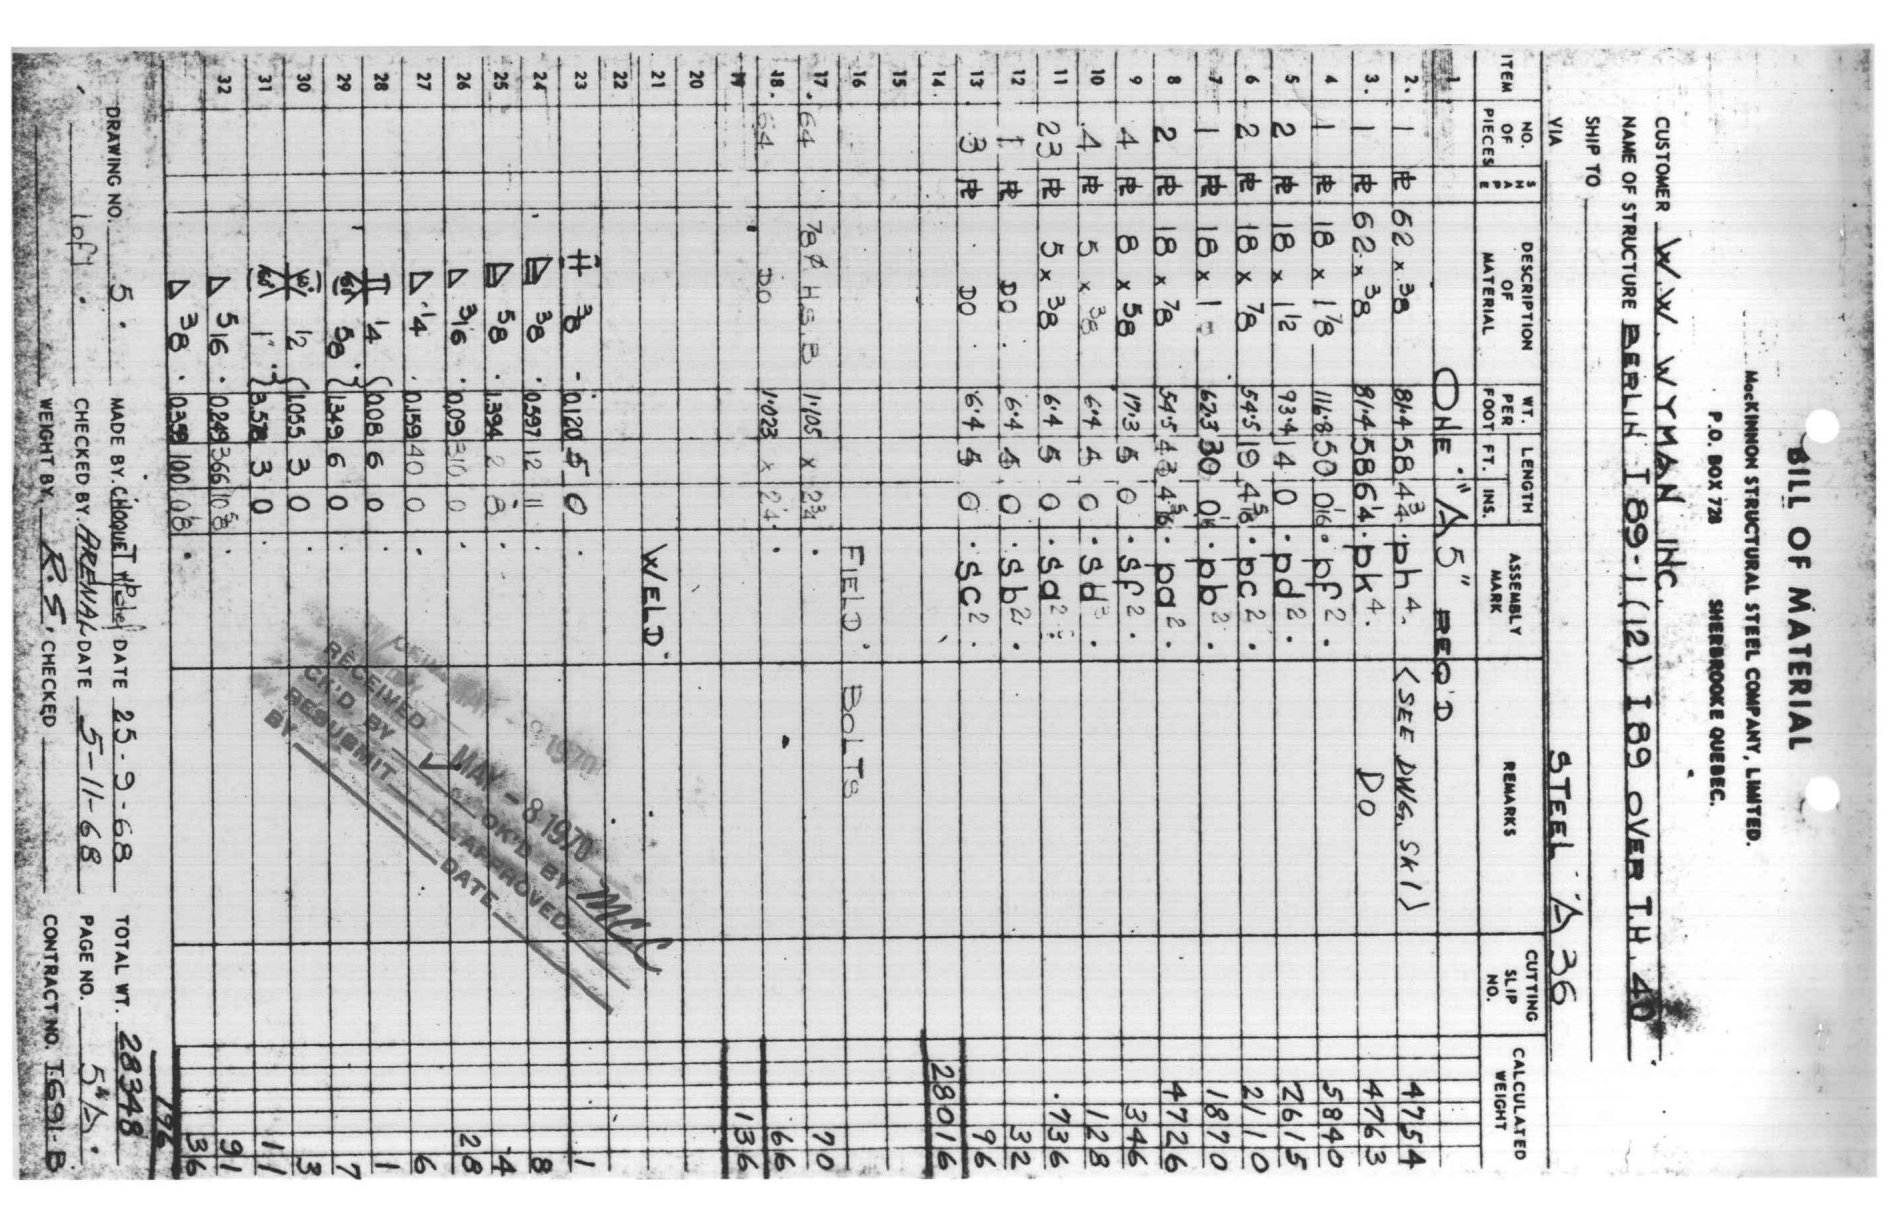 BILL OF MATERIAL
McKINNON STRUCTURAL STEEL COMPANY, LIMITED.
P.O. BOX 728 SHERBROOKE QUEBEC.
CUSTOMER W.W. WYMAN INC.
NAME OF STRUCTURE BERLIN I 89-1 (12) I 89 OVER T.H. 40
SHIP TO
VIA STEEL A 36
ITEM NO. OF PIECES SHAPE DESCRIPTION OF MATERIAL WT. PER FOOT LENGTH FT. INS. ASSEMBLY MARK REMARKS CUTTING SLIP NO. CALCULATED WEIGHT
1 ONE "A5" REQ'D
2. 1 PL 62 x 3/8 81.4 58 4 3/4 ph4. (SEE DWG. SK1) 4754
3. 1 PL 62 x 3/8 81.4 58 6 1/4 pk4. DO 4763
4 1 PL 18 x 1 7/8 116.8 50 0 1/16 pf2. 5840
5 2 PL 18 x 1 1/2 93.4 14 0 pd2. 2615
6 2 PL 18 x 7/8 54.5 19 4 5/16 pc2. 2110
7 1 PL 18 x 1 62.3 30 0 pb2. 1870
8 2 PL 18 x 7/8 54.5 43 4 5/16 pa2. 4726
9 4 PL 8 x 5/8 17.3 5 0 sf2. 346
10 4 PL 5 x 3/8 6.4 5 0 sd3. 128
11 23 PL 5 x 3/8 6.4 5 0 sa2. 736
12 1 PL DO 6.4 5 0 sb2. 32
13 3 PL DO 6.4 5 0 sc2. 96
14 28016
15
16 FIELD BOLTS
17 64 7/8 Ø H.S.B 1.105 x 2 3/4 70
18 64 DO 1.023 x 2 1/4 66
19 136
20
21 WELD
22
23 3/8 0.120 5 0 1
24 3/8 0.597 12 11 8
25 5/8 1.394 2 8 4
26 3/16 .09 310 0 28
27 1/4 0.159 40 0 6
28 1/4 0.08 6 0 1
29 60° 5/8 1.349 6 0 7
30 1/2 1.055 3 0 3
31 1" 3.578 3 0 11
32 5/16 0.249 366 10 5/8 91
3/8 0.359 100 0 1/8 36
196
RECEIVED MAY - 8 1970
CK'D BY OK'D BY MCC
RESUBMIT APPROVED
BY DATE
DRAWING NO. 5. MADE BY CHOQUET DATE 25-9-68 TOTAL WT. 28348
1 of 1 CHECKED BY ARENAL DATE 5-11-68 PAGE NO. 5A
WEIGHT BY R.S. CHECKED CONTRACT NO. T.691-B